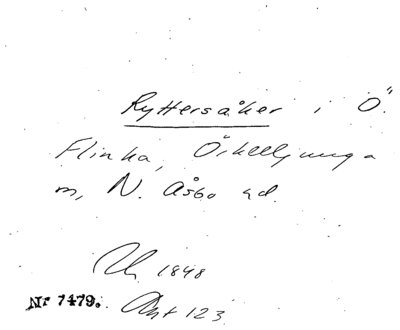 Ryttersåker i Ö.
Flinka, Örkelljunga
sn, N. Åsbo hd.
1848
Nr 7479. Akt 123.